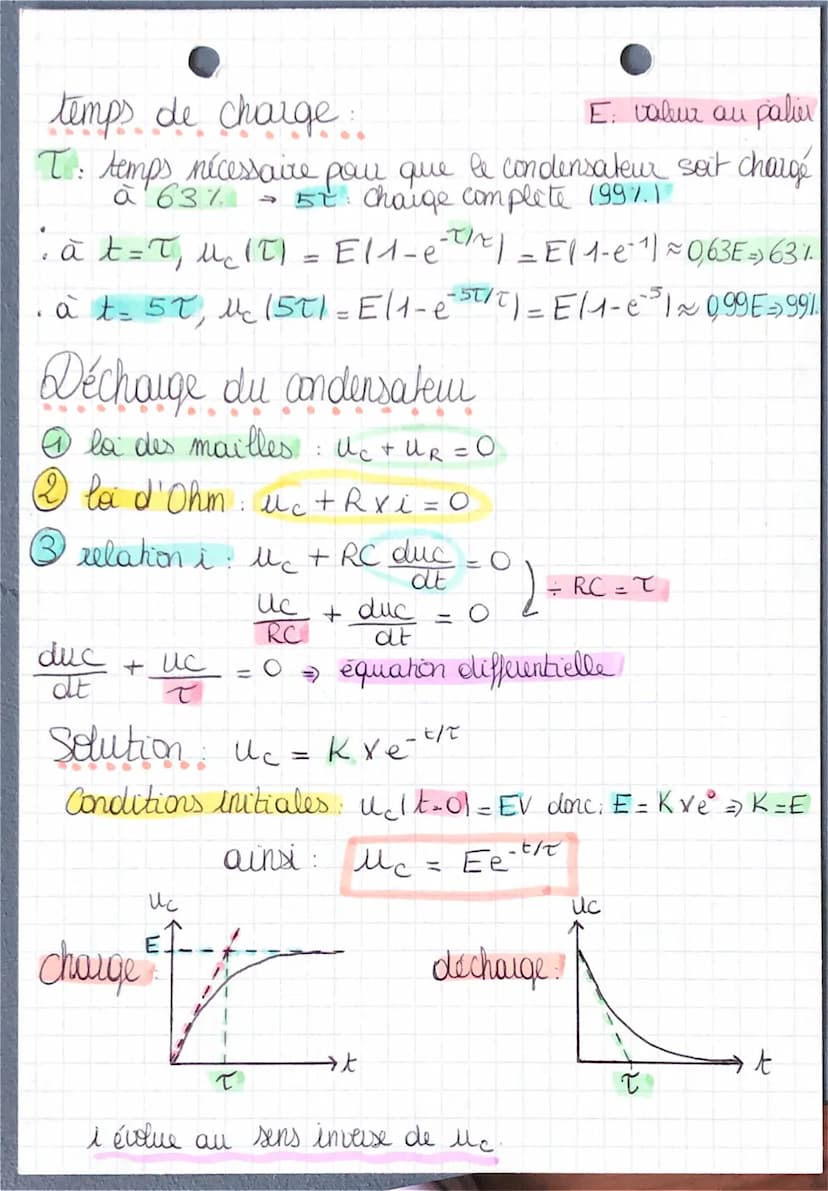 temps de charge :
E : valeur au palier
τ : temps nécessaire pour que le condensateur soit chargé
à 63% → 5τ : charge complète (99%)
: à t=τ, uc(τ) = E(1-e^-τ/τ) = E(1-e^-1) ≈ 0,63E ⇒ 63%
. à t= 5τ, uc(5τ) = E(1-e^-5τ/τ) = E(1-e^-5) ≈ 0,99E ⇒ 99%
Décharge du condensateur
① loi des mailles : uc + uR = 0
② loi d'Ohm : uc + R x i = 0
③ relation i : uc + RC duc/dt = 0
÷ RC = τ
uc/RC + duc/dt = 0
duc/dt + uc/τ = 0 ⇒ équation differentielle
Solution : uc = K x e^-t/τ
Conditions initiales : uc(t=0) = EV donc : E = K x e^0 ⇒ K = E
ainsi : uc = Ee^-t/τ
uc
E
charge :
τ
t
uc
décharge :
τ
t
i évolue au sens inverse de uc.